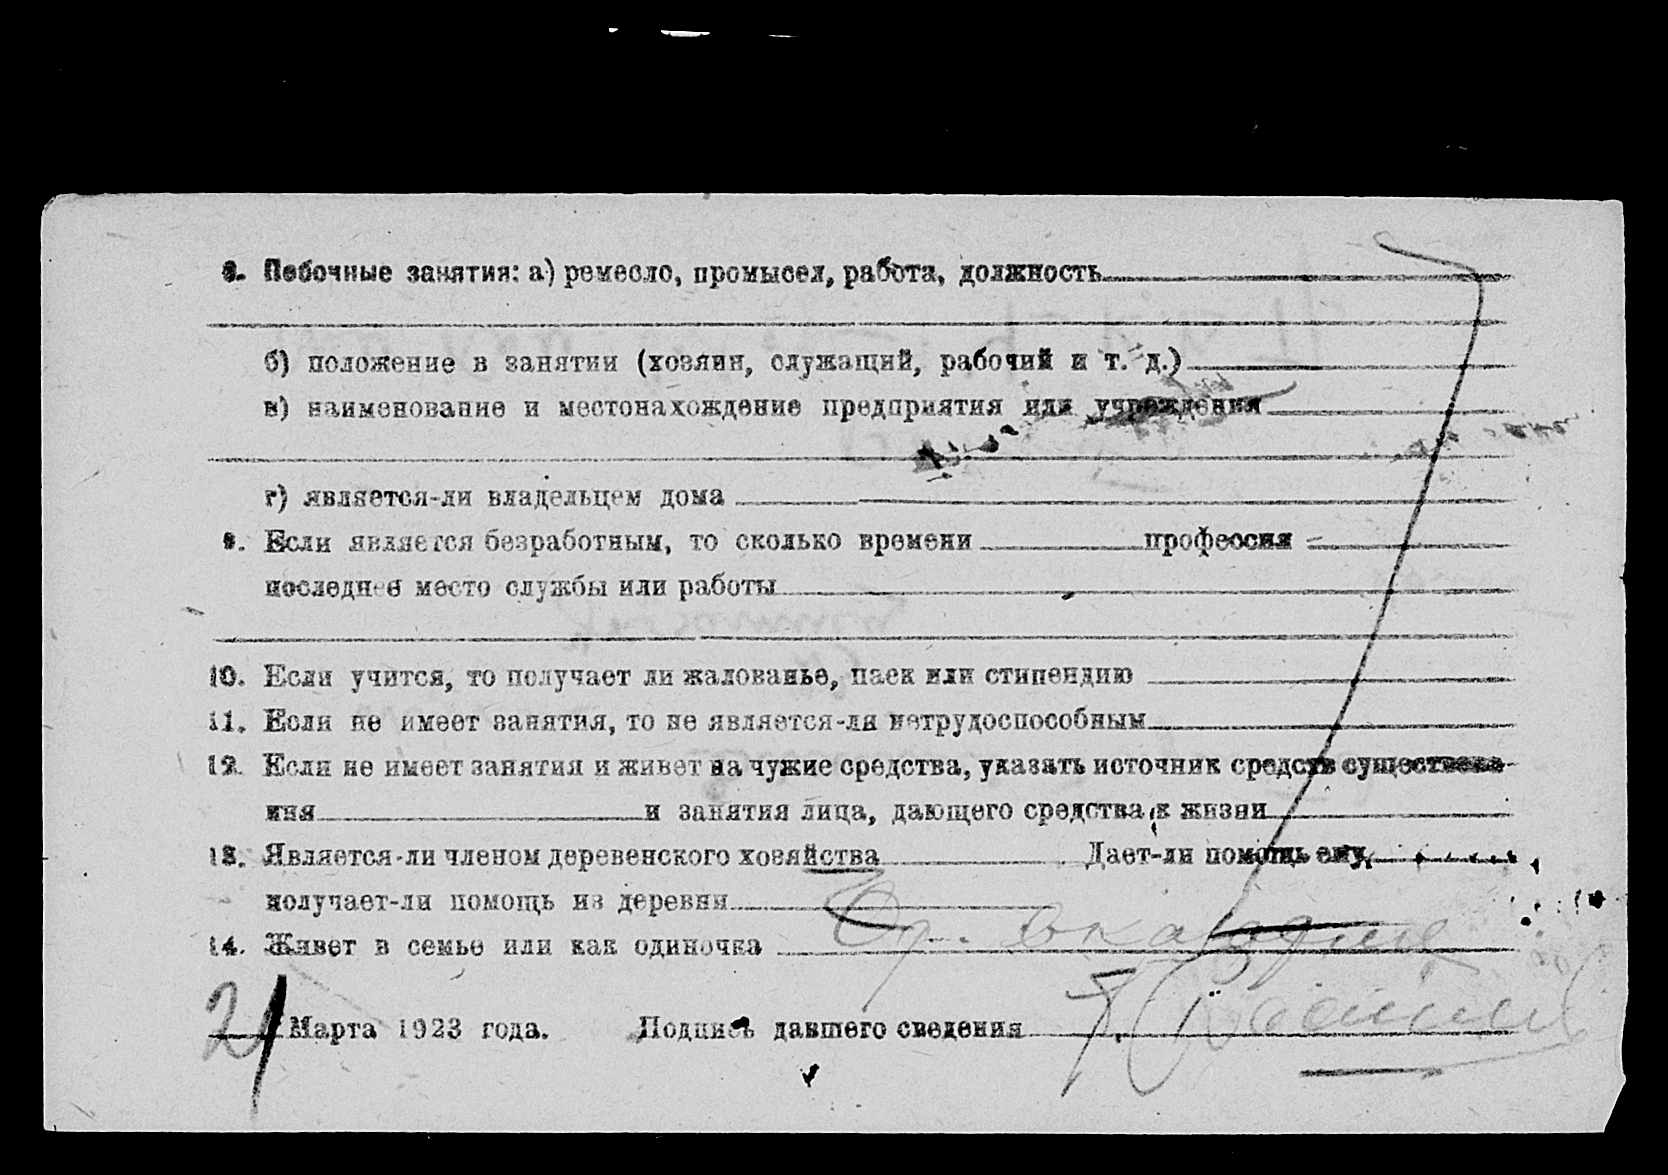 8. Побочные занятия: а) ремесло, промысел, работа, должность
б) положение в занятии (хозяин, служащий, рабочий и т. д.)
в) наименование и местонахождение предприятия или учреждения
г) является-ли владельцем дома
9. Если является безработным, то сколько времени профессия
последнее место службы или работы
10. Если учится, то получает ли жалованье, паек или стипендию
11. Если не имеет занятия, то не является-ли нетрудоспособным
12. Если не имеет занятия и живет на чужие средства, указать источник средств существова-
ния и занятия лица, дающего средства к жизни
13. Является-ли членом деревенского хозяйства Дает-ли помощь ему,
получает-ли помощь из деревни
14. Живет в семье или как одиночка
21 Марта 1923 года. Подпись давшего сведения